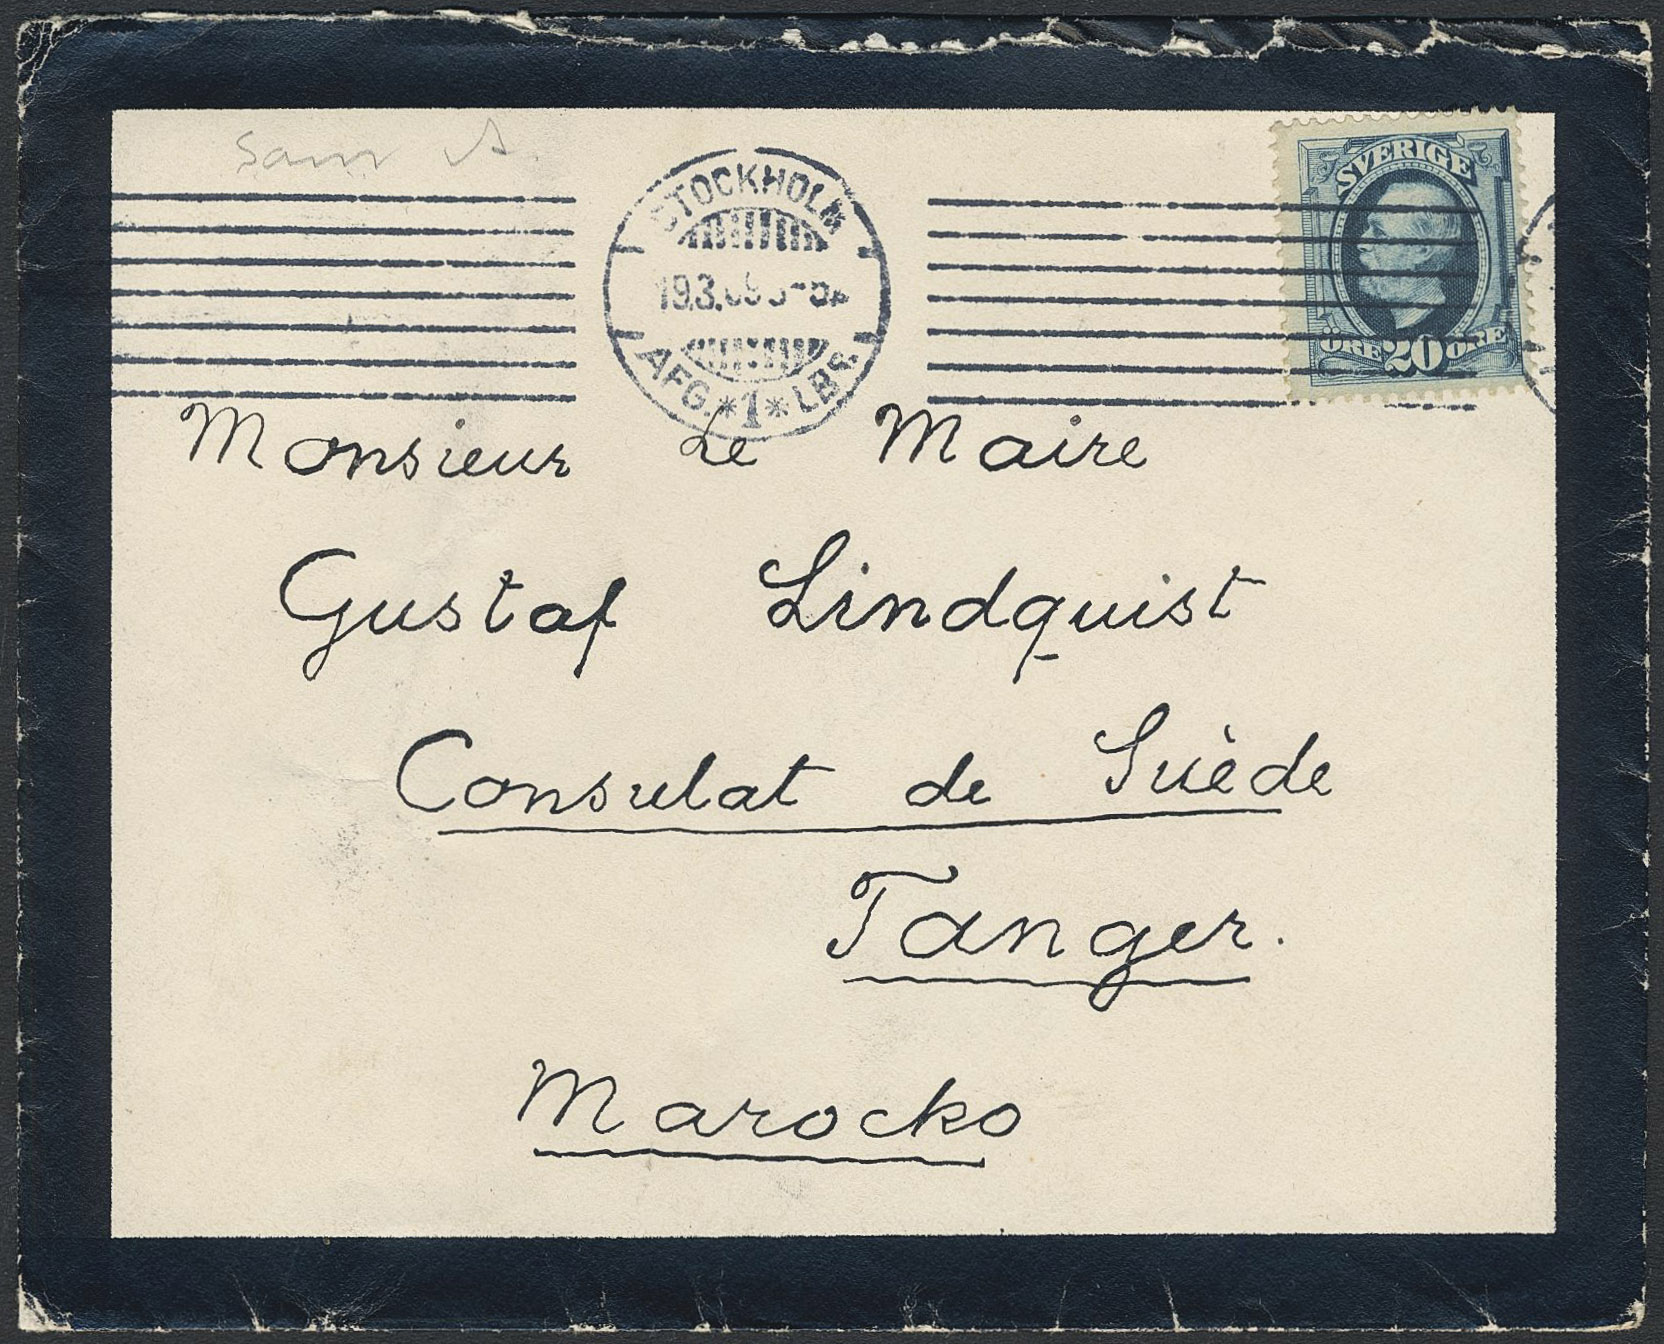 Sam
STOCKHOLM
19.3.09
AFG. *1* LBR
SVERIGE
ÖRE 20 ÖRE
Monsieur Le Maire
Gustaf Lindquist
Consulat de Suède
Tanger.
Marocko